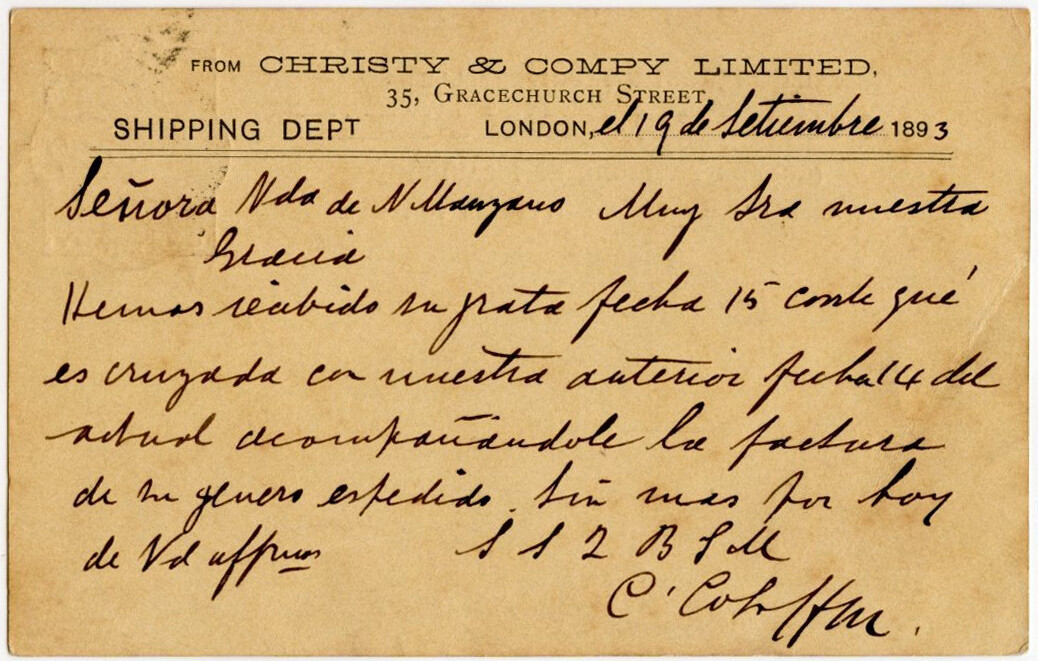 FROM CHRISTY & COMPY LIMITED,
35, GRACECHURCH STREET
SHIPPING DEPT LONDON, el 19 de Setiembre 1893
Señora Vda de N Manzano Muy Sra nuestra
Gracia
Hemos recibido su grata fecha 15 corrte qué
es cruzada con nuestra anterior fecha 14 del
actual acompañándole la factura
de su genero espedido. Sin mas por hoy
de Vd affmos S S Q B S M
C.